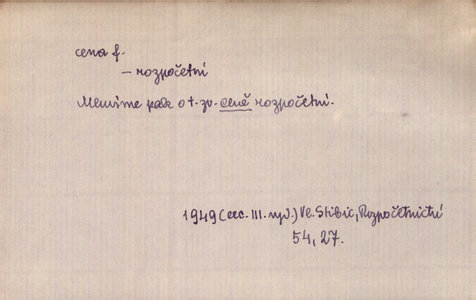 cena f.
– rozpočetní
Mluvíme pak o t. zv. ceně rozpočetní.
1949 (cec. III. vyd.) Vl. Stibic, Rozpočetnictví
54, 27.